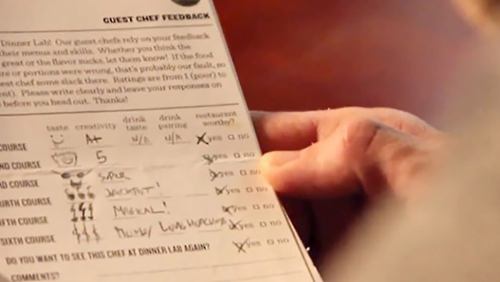 GUEST CHEF FEEDBACK
Dinner Lab! Our guest chefs rely on your feedback
their menus and skills. Whether you think the
great or the flavor sucks, let them know! If the food
re or portions were wrong, that's probably our fault, so
est chef some slack there. Ratings are from 1 (poor) to
nt). Please write clearly and leave your responses on
before you head out. Thanks!
taste creativity drink taste drink pairing restaurant worthy?
COURSE A+ N/A N/A yes no
ND COURSE 5 yes no
D COURSE yes no
URTH COURSE JACKPOT! yes no
FIFTH COURSE MAGICAL! yes no
SIXTH COURSE yes no
DO YOU WANT TO SEE THIS CHEF AT DINNER LAB AGAIN? yes no
COMMENTS?